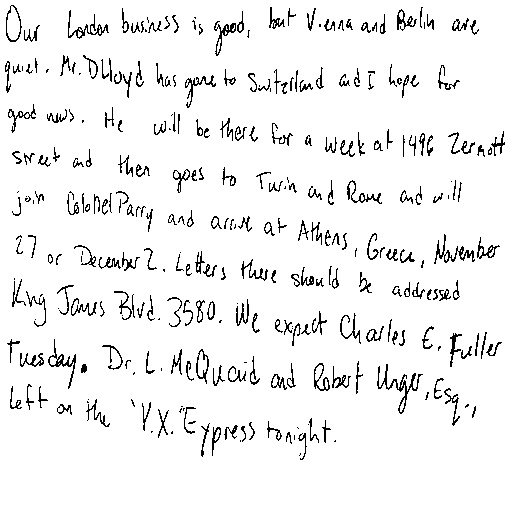 Our London business is good, but Vienna and Berlin are
quiet. Mr. D Lloyd has gone to Switzerland and I hope for
good news. He will be there for a week at 1496 Zermott
street and then goes to Turin and Rome and will
join Colonel Parry and arrive at Athens, Greece, November
27 or December 2. Letters there should be addressed
King James Blvd. 3580. We expect Charles E. Fuller
Tuesday. Dr. L. McQuaid and Robert Unger, Esq.,
left on the "V.X." Express tonight.